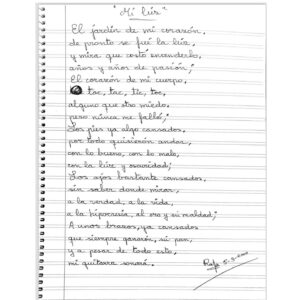 "Mi luz"
El jardín de mi corazón,
de pronto se fué la luz,
y mira que costó encenderlo,
años y años de pasión;
El corazón de mi cuerpo,
toc, tac, tic, toc,
alguno que otro miedo,
pero nunca me falló;
Los pies ya algo cansados,
por todo quisieron andar,
con lo bueno, con lo malo,
con la luz y oscuridad;
Los ojos bastante cansados,
sin saber donde mirar,
a la verdad, a la vida,
a la hipocresía, al ero y su maldad;
A unos brazos, ya cansados
que siempre ganarón, su pan,
y a pesar de todo esto,
mi guitarra sonará.
Rafa